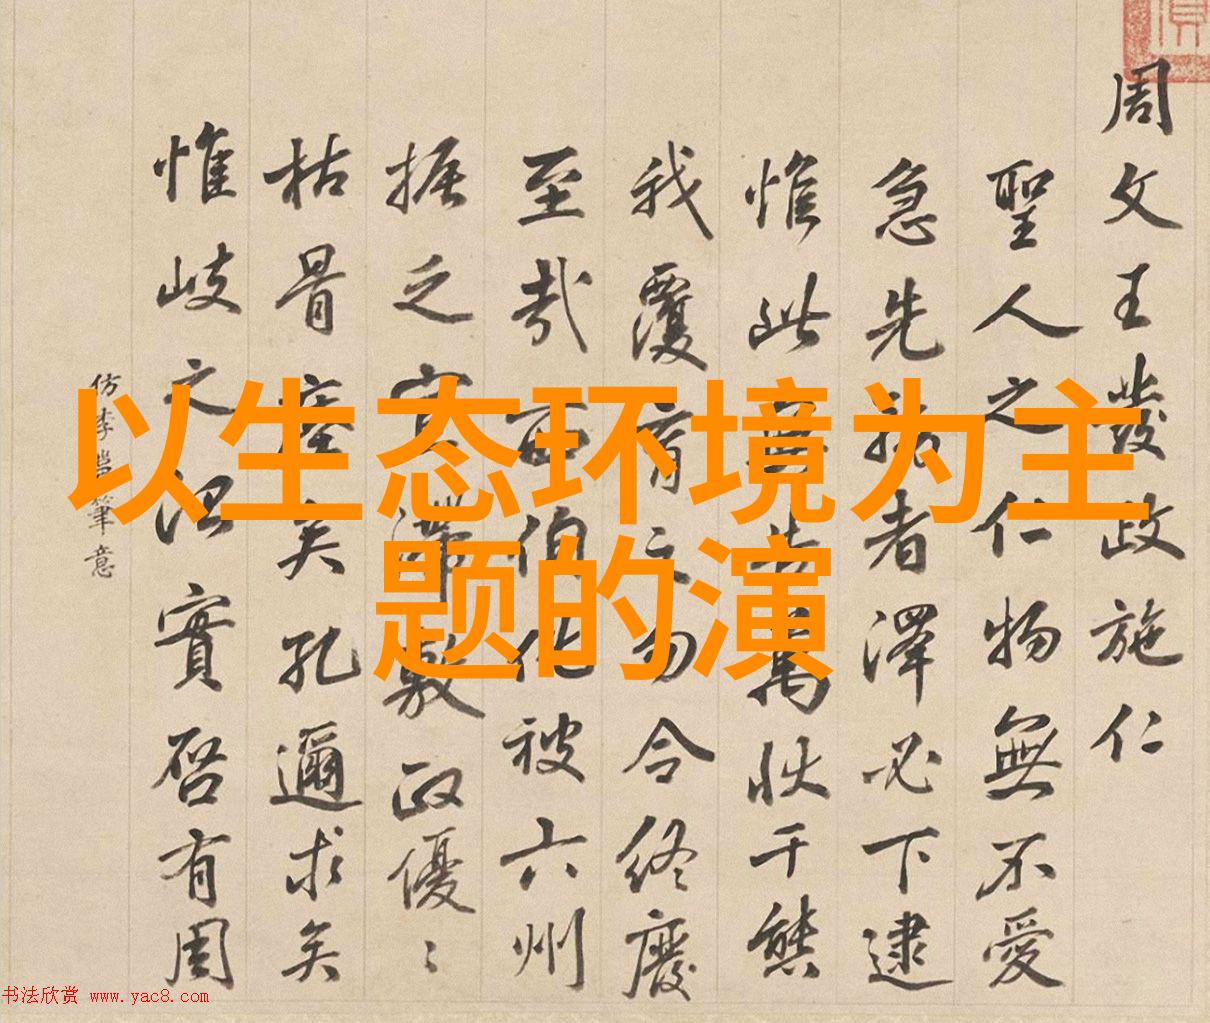 周文王發政施仁
聖人之仁物無不愛
急先者澤必下逮
惟此無告萬狀千態
我覆育之勿令終廢
至哉西伯化被六州
振之澤敷政優〻
枯骨瘞矣孔邇求矣
惟岐之治實啓有周
仿李邕筆意
以生态环境为主
题的演
书法欣赏 www.yac8.com